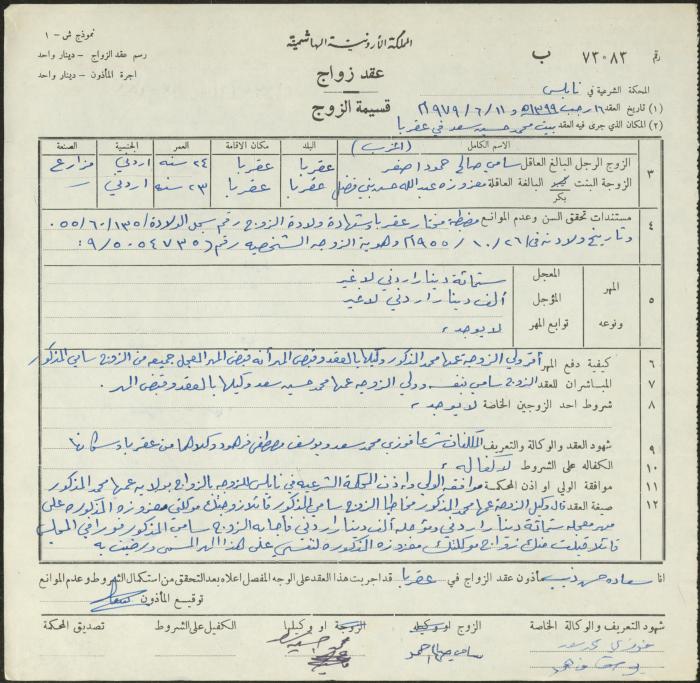 نموذج ش - ١
رسم عقد الزواج - دينار واحد
اجرة المأذون - دينار واحد
المملكة الأردنية الهاشمية
عقد زواج
قسيمة الزوج
رقم ٧٣٠٨٣ ب
المحكمة الشرعية في نابلس
(١) تاريخ العقد ١٦ رجب ١٣٩٩هـ و ١١/٦/١٩٧٩م
(٢) المكان الذي جرى فيه العقد بيت محمد حسين سعد في عقربا
الاسم الكامل البلد مكان الاقامة العمر الجنسية الصنعة
٣ الزوج الرجل البالغ العاقل سامي صالح حمود اصفر عقربا عقربا ٢٤ سنه اردني مزارع
الزوجة البنت بكر البالغة العاقلة مفوزه عبدالله حسين بني فضل عقربا عقربا ٢٣ سنه اردني
٤ مستندات تحقق السن وعدم الموانع مضبطة مختار عقربا وشهادة ولادة الزوج رقم سجل الولادة
وتاريخ ولادته في ٢٦/١٠/١٩٥٥م وهوية الزوجه الشخصيه رقم
٥ المهر ونوعه
المعجل ستمائة دينار اردني لا غير
المؤجل ألف دينار اردني لا غير
توابع المهر لا يوجد
٦ كيفية دفع المهر أقر ولي الزوجه عمها محمد المذكور وكيلها بالعقد وقبض المهر أنه قبض المهر المعجل جميعه من الزوج سامي المذكور
٧ المباشران للعقد الزوج سامي بنفسه وولي الزوجه عمها محمد حسين سعد وكيلها بالعقد وقبض المهر .
٨ شروط احد الزوجين الخاصة لا يوجد
٩ شهود العقد والوكالة والتعريف المكلفان شرعا فوزي محمد سعد ويوسف مصطفى فرهود وكلاهما من عقربا وسكانها
١٠ الكفاله على الشروط لا كفاله
١١ موافقة الولي او اذن المحكمة موافقة الولي واذن المحكمة الشرعيه في نابلس للزوجه بالزواج بولاية عمها محمد المذكور
١٢ صفة العقد قال وكيل الزوجة عمها محمد المذكور مخاطبا الزوج سامي المذكور قائلا زوجتك موكلتي مفوزه المذكوره على
مهر معجله ستمائة دينار اردني ومؤجله ألف دينار اردني فأجابه الزوج سامي المذكور فورا في المجلس
قائلا قبلت منك زواج موكلتك مفوزه المذكوره لنفسي على هذا المهر المسمى ورضيت به
انا سعاده حسن ذيب مأذون عقد الزواج في عقربا قد اجريت هذا العقد على الوجه المفصل اعلاه بعد التحقق من استكمال الشروط وعدم الموانع
توقيع المأذون
شهود التعريف والوكالة الخاصة الزوج او وكيله الزوجة او وكيلها الكفيل على الشروط تصديق المحكمة
فوزي محمد سعد